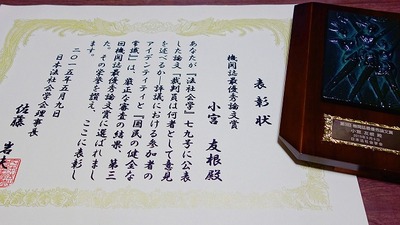 表彰状
機関誌最優秀論文賞
小宮 友根殿
あなたが『法社会学』七九号に公表
した論文「裁判員は何者として意見
を述べるか―評議における参加者の
アイデンティティと『国民の健全な
常識』」は、厳正な審査の結果、第三
回機関誌最優秀論文賞に選ばれまし
た。その栄誉を讃え、ここに表彰し
ます。
二〇一五年五月九日
日本法社会学会理事長
佐藤 岩夫